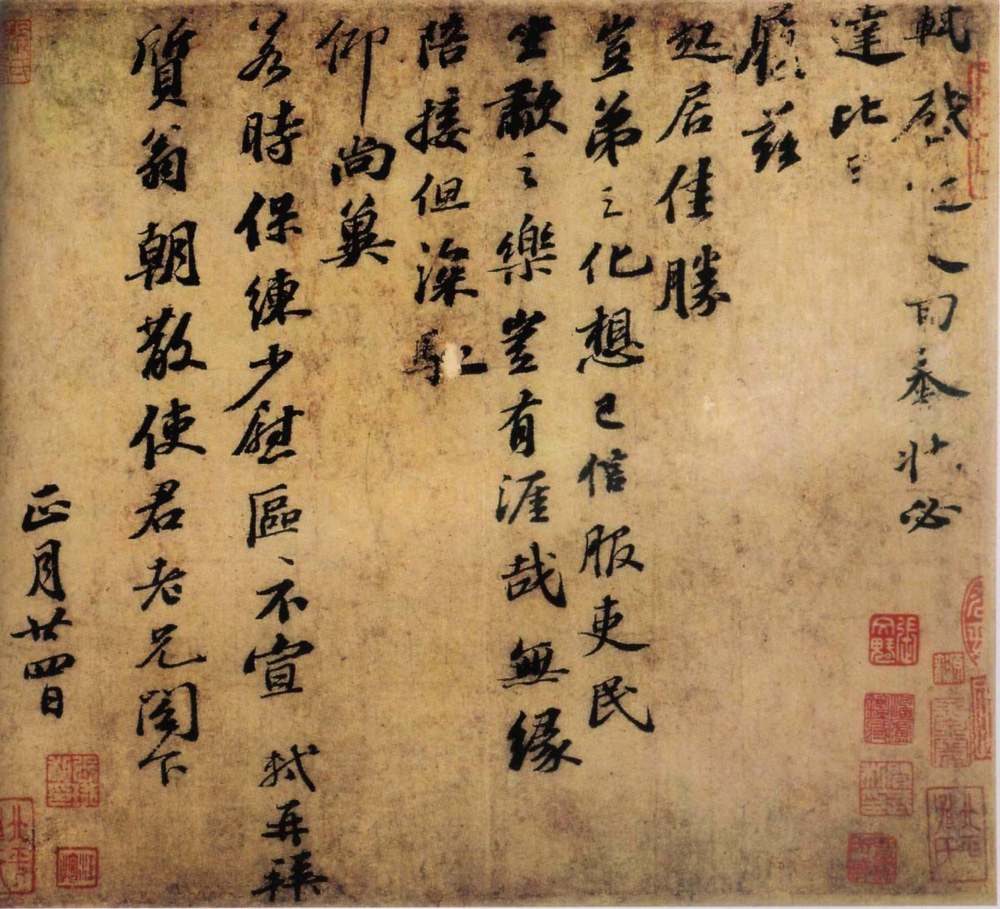 軾啓人回奉狀必
達比
履茲
起居佳勝
豈弟之化想已信服吏民
坐歗之樂豈有涯哉無緣
陪接但深馳
仰尚冀
若時保練少慰區〻不宣 軾再拜
質翁朝散使君老兄閣下
正月廿四日
張文魁